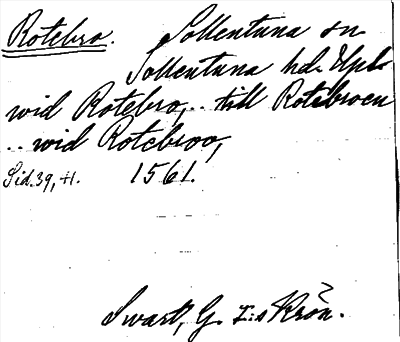 Rotebro. Sollentuna sn
Sollentuna hd. Uppl.
wid Rotebro,.. till Rotebroen
.. wid Rotebroo,
Sid. 39, 41. 1561.
Swart, G. I:s Krön.